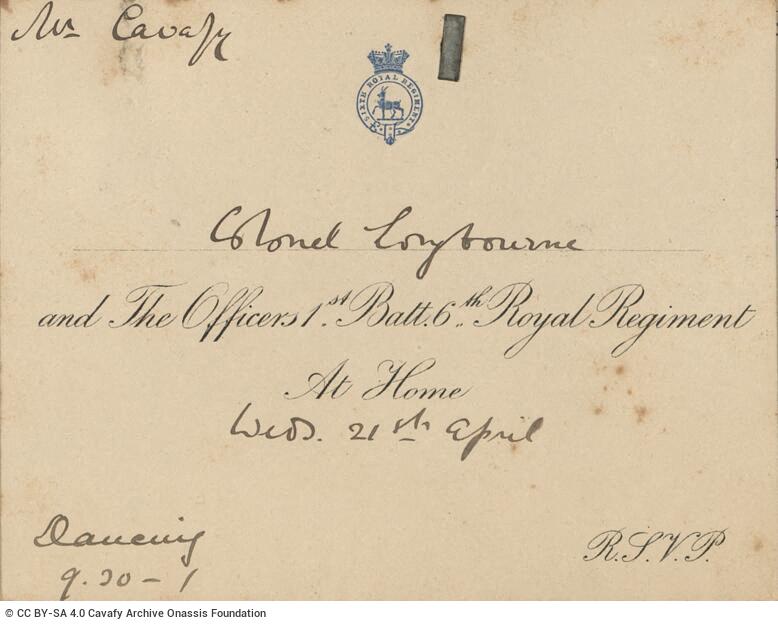 Mr Cavafy
SIXTH ROYAL REGIMENT
Colonel Longbourne
and The Officers 1st. Batt. 6th. Royal Regiment
At Home
Weds. 21st April
Dancing
9.30 - 1
R.S.V.P.
© CC BY-SA 4.0 Cavafy Archive Onassis Foundation